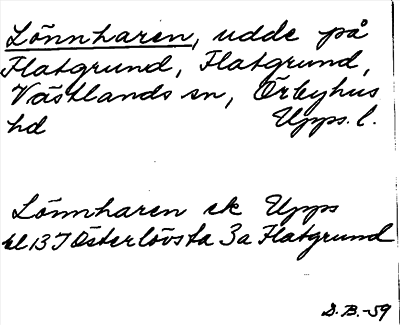 Lönnharen, udde på
Flatgrund, Flatgrund,
Västlands sn, Örbyhus
hd Upps. l.
Lönnharen ek Upps
bl 13 I Österlövsta 3a Flatgrund
S. B.-59